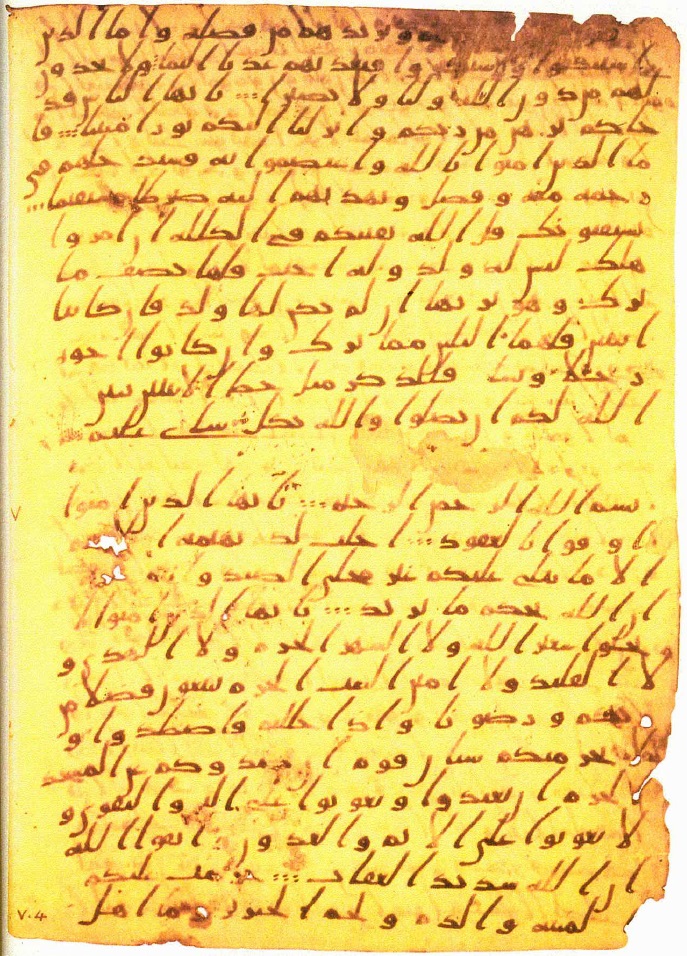 ويزيدهم من فضله واما الذين
استنكفوا واستكبروا فيعذبهم عذابا اليما ولا يجدون
لهم من دون الله وليا ولا نصيرا يايها الناس قد
جاكم برهن من ربكم وانزلنا اليكم نورا مبينا فا
ما الذين امنوا بالله واعتصموا به فسيدخلهم في
رحمة منه وفضل ويهديهم اليه صرطا مستقيما
يستفتونك قل الله يفتيكم في الكللة ان امروا
هلك ليس له ولد وله اخت فلها نصف ما
ترك وهو يرثها ان لم يكن لها ولد فان كانتا
اثنتين فلهما الثلثن مما ترك وان كانوا اخوة
رجالا ونسا فللذكر مثل حظ الانثيين يبين
الله لكم ان تضلوا والله بكل شى عليم
بسم الله الرحمن الرحيم يايها الذين امنوا
اوفوا بالعقود احلت لكم بهيمة
الا ما يتلى عليكم غير محلى الصيد وانتم
ان الله يحكم ما يريد يايها الذين امنوا لا
تحلوا شعير الله ولا الشهر الحرم ولا الهدى و
لا القليد ولا امين البيت الحرم يبتغون فضلا من
ربهم ورضونا واذا حللتم فاصطدوا و
لا يجرمنكم شنان قوم ان صدوكم عن المسجد
الحرم ان تعتدوا وتعونوا على البر والتقوى و
لا تعونوا على الاثم والعدون واتقوا الله
ان الله شديد العقاب حرمت عليكم
الميتة والدم ولحم الخنزير وما اهل
V.4